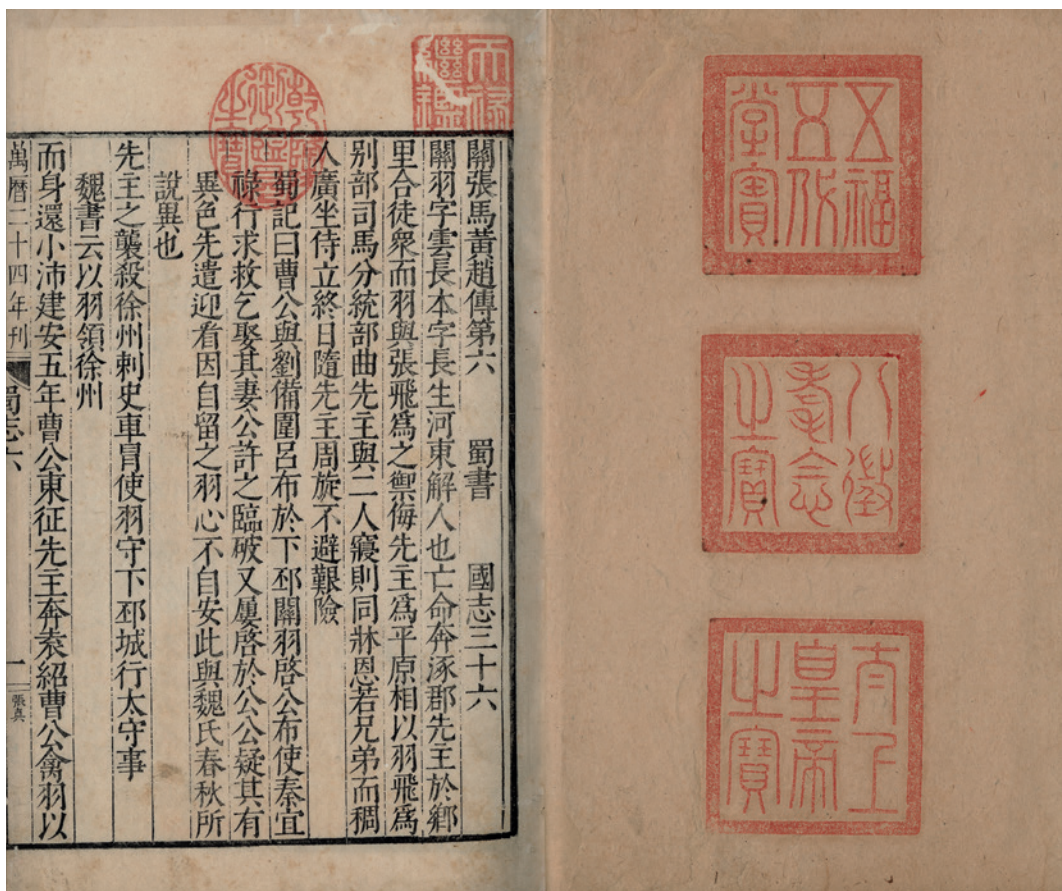 五福
五代
堂寶
八徵
耄念
之寶
太上
皇帝
之寶
天祿
繼鑑
乾隆
御覽
之寶
關張馬黃趙傳第六 蜀書 國志三十六
關羽字雲長本字長生河東解人也亡命奔涿郡先主於鄉
里合徒衆而羽與張飛爲之禦侮先主爲平原相以羽飛爲
别部司馬分統部曲先主與二人寢則同牀恩若兄弟而稠
人廣坐侍立終日隨先主周旋不避艱險
蜀記曰曹公與劉備圍呂布於下邳關羽啓公布使秦宜
祿行求救乞娶其妻公許之臨破又屢啓於公公疑其有
異色先遣迎看因自留之羽心不自安此與魏氏春秋所
說異也
先主之襲殺徐州刺史車冑使羽守下邳城行太守事
魏書云以羽領徐州
而身還小沛建安五年曹公東征先主奔袁紹曹公禽羽以
萬暦二十四年刊 蜀志六 一 張